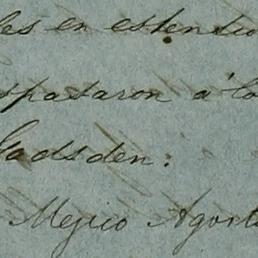 les en estencio
spasaron á lo
Gadsden:
Mejico Agosto